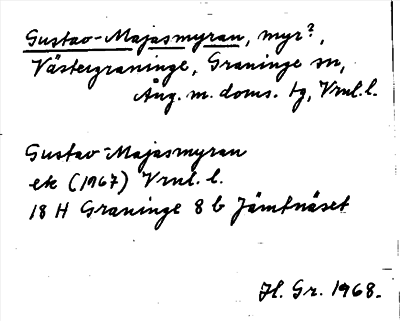 Gustav-Majasmyran, myr?,
Västergraninge, Graninge sn,
Ång. m. doms. tg, Vrnl. l.
Gustav-Majasmyran
ek (1967) Vrnl. l.
18 H Graninge 8 b Jämtnäset
Hl. Gr. 1968.